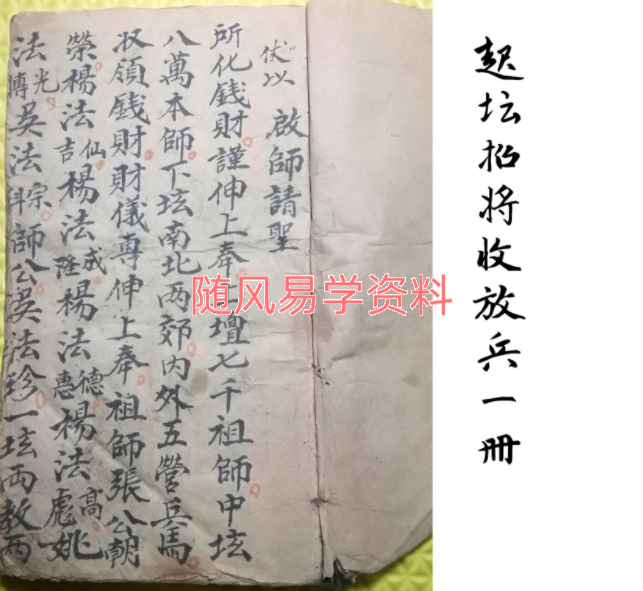 起坛招将收放兵一册
伏以 啟師請聖
所化錢財謹伸上奉上壇七千祖師中坛
八萬本師下坛南北两郊内外五營兵馬
収領錢財財儀專伸上奉祖師張公朝
榮楊法吉仙楊法陞成楊法惠德楊法彪高姚
法傳光吳法科宗師公吳法珍一坛両教两
随风易学资料